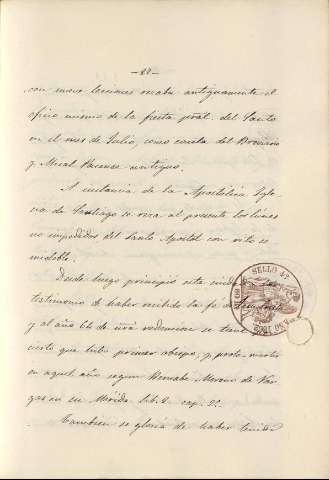 con nueve lecciones rezaba antiguamente el
oficio mismo de la fiesta pral. del Santo
en el mes de Julio, como consta del Breviario
y Misal Pacense antiguo.
A instancia de la Apostólica Igle-
sia de Santiago se reza al presente los lunes
no impedidos del Santo Apostol con rito se-
midoble.
Desde luego principió esta ciudad
testimonio de haber recibido la fé de
y al año 66 de nra redencion se tiene
cierto que tubo primer obispo, y proto-martir
en aquel año segun Bernabé Moreno de Var-
gas en su Mérida lib. 2 cap. 2º
Tambien se gloría de haber tenido
SELLO 4º